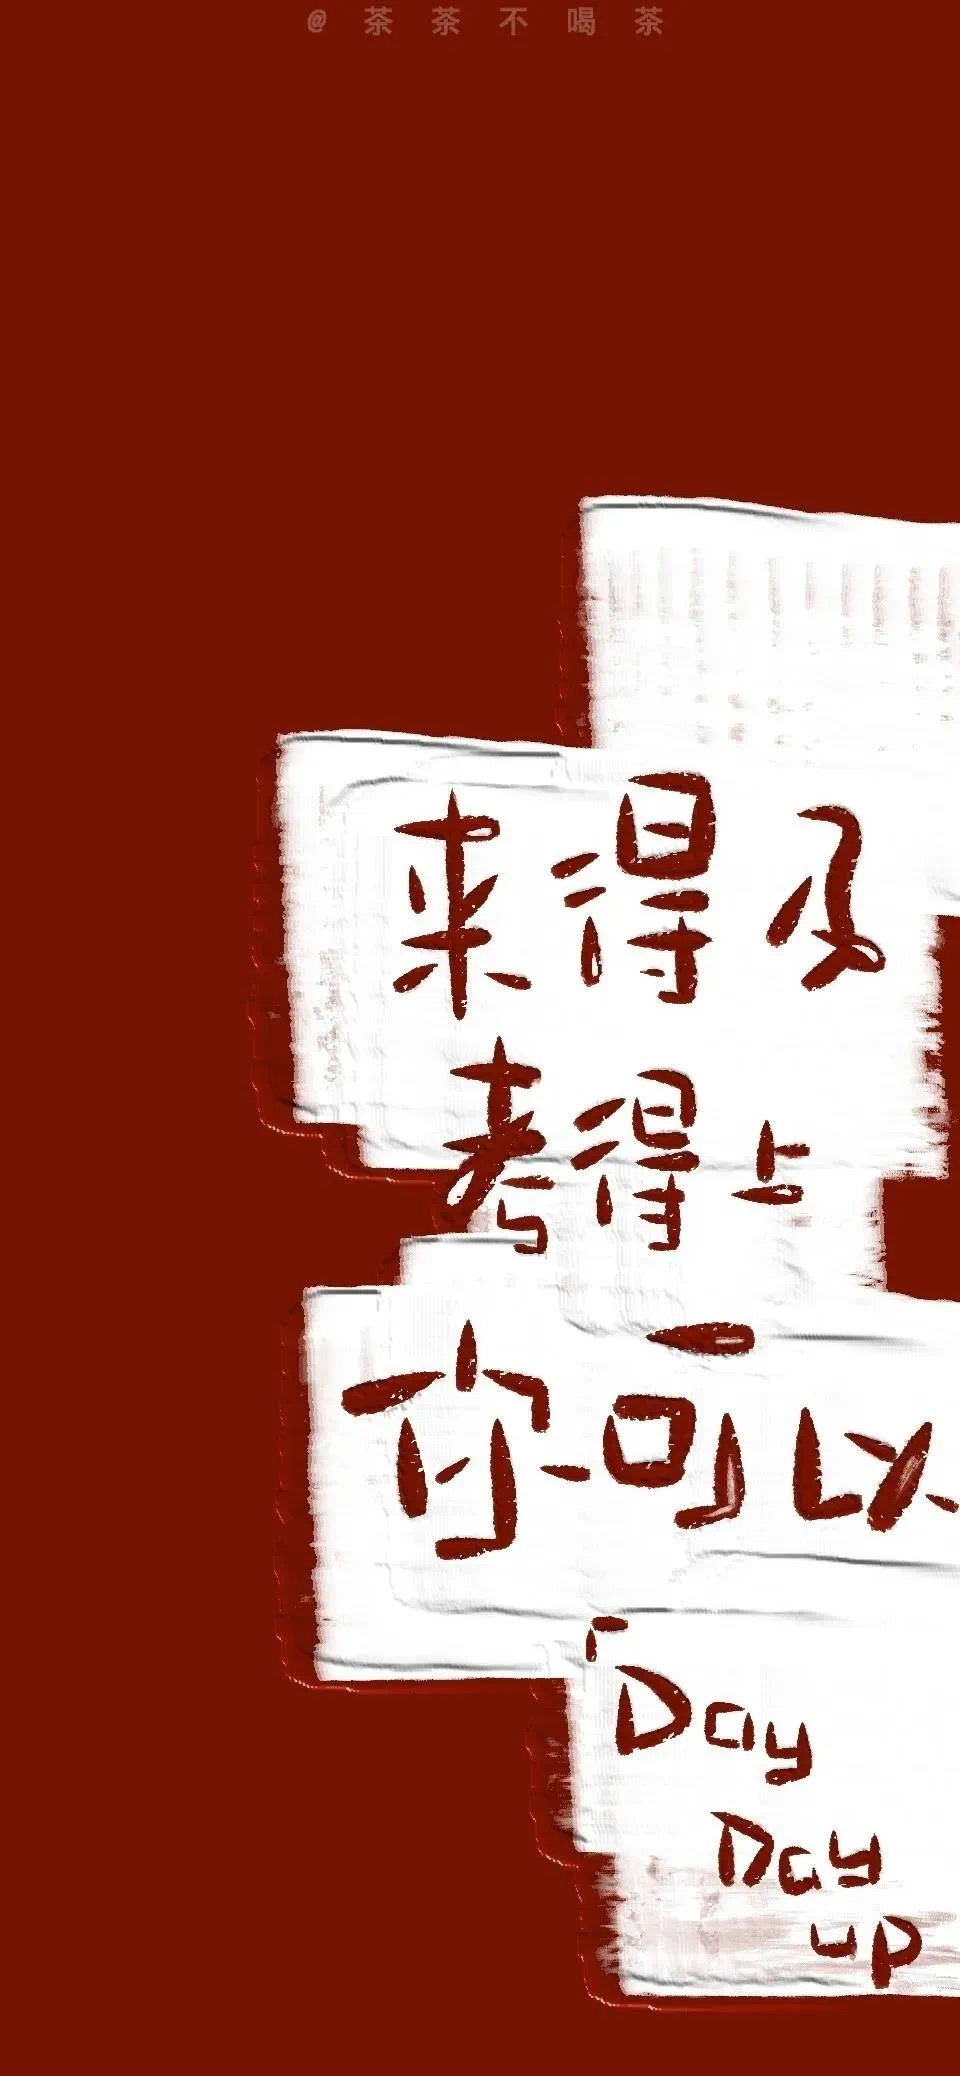 @茶茶不喝茶
来得及
考得上
你可以
「Day
Day
up